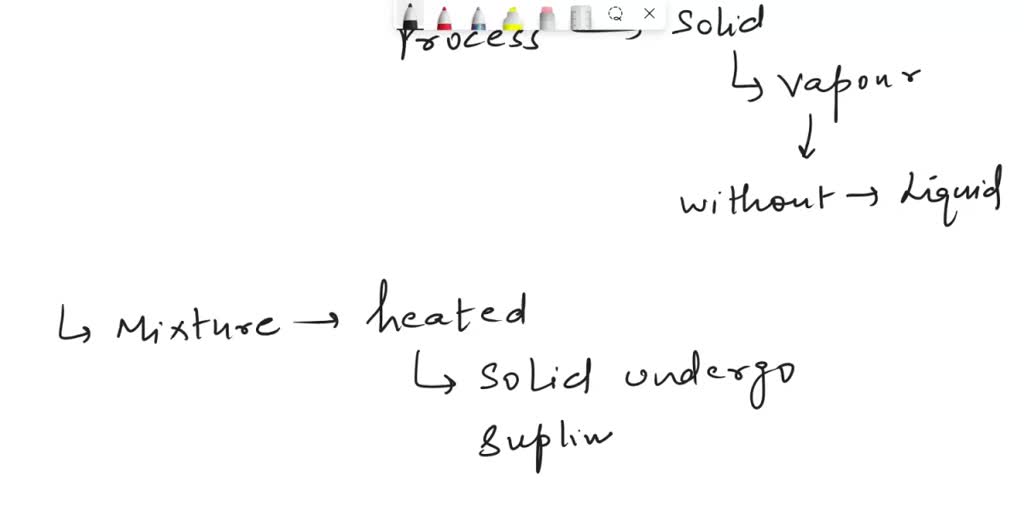 Process → Solid
↳ Vapour
↓
without → Liquid
↳ Mixture → heated
↳ Solid undergo
Suplim